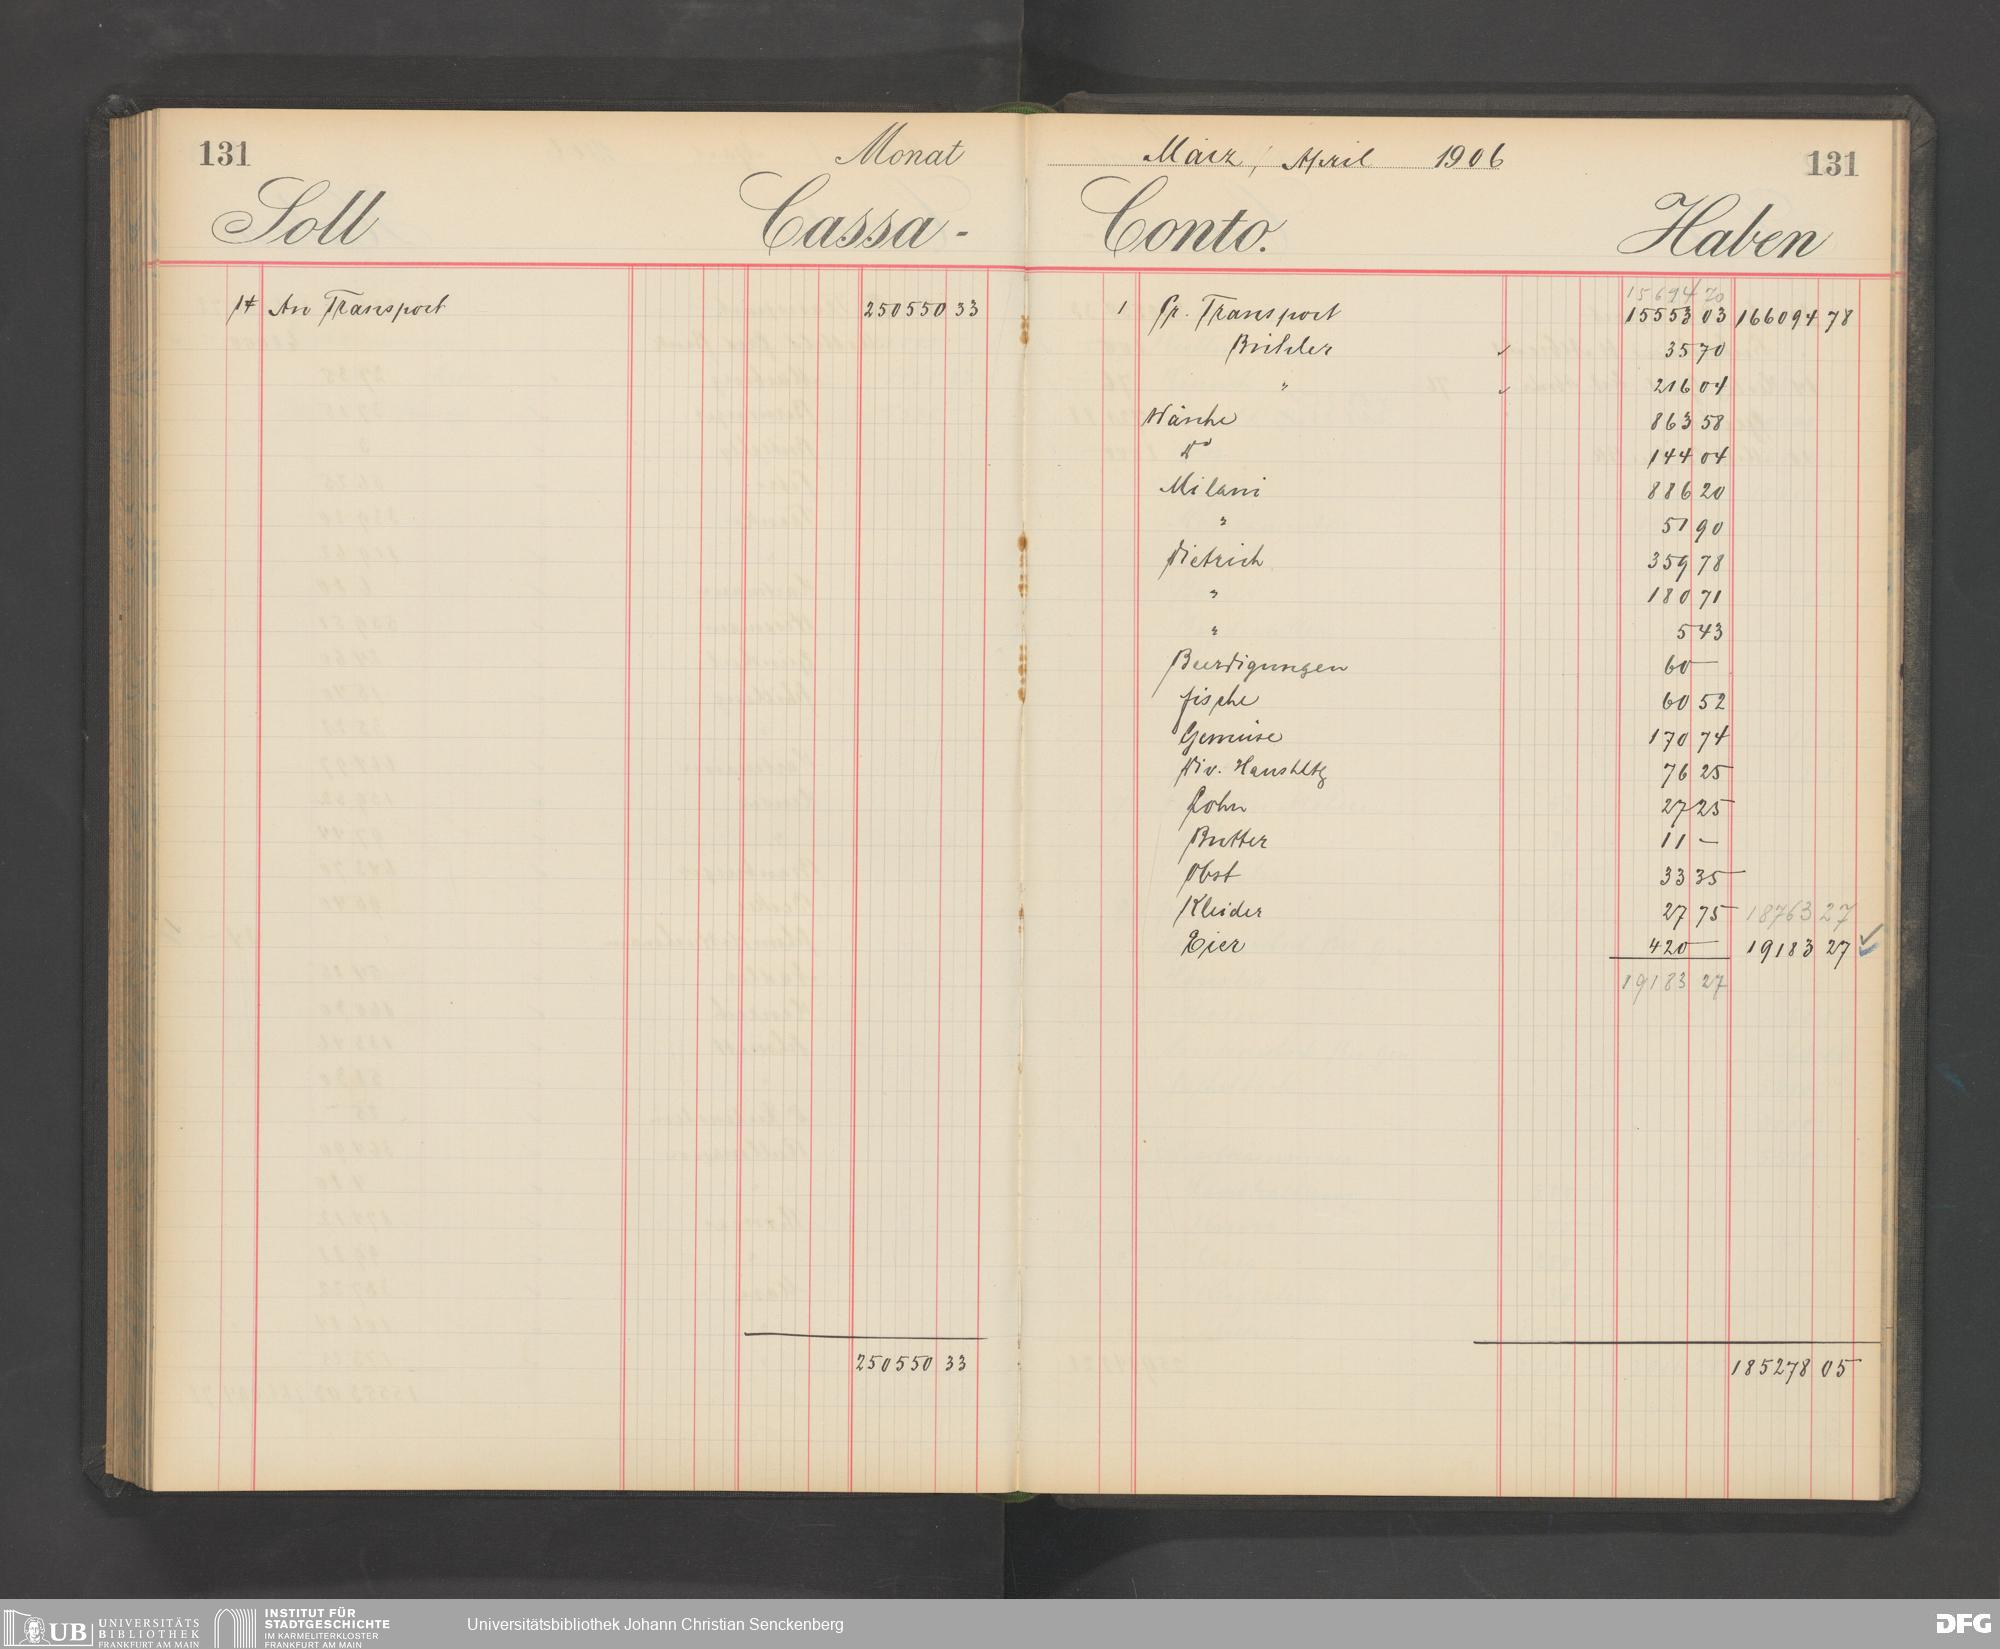 131 Monat März, April 1906 131
Soll Cassa- Conto. Haben
1 An Transport 250550 33
15694 70
1 Pr. Transport 15553 03 166094 78
Bühler 35 70
" 216 04
Wäsche 863 58
do 144 04
Milani 886 20
" 51 90
Dietrich 359 78
" 180 71
" 5 43
Beerdigungen 60 —
Fische 60 52
Gemüse 170 74
Div. Haushltg 76 25
Lohn 27 25
Butter 11 —
Obst 33 35
Kleider 27 75 18763 27
Eier 420 — 19183 27
19183 27
250550 33
185278 05
UB UNIVERSITÄTS
BIBLIOTHEK
FRANKFURT AM MAIN
INSTITUT FÜR
STADTGESCHICHTE
IM KARMELITERKLOSTER
FRANKFURT AM MAIN
Universitätsbibliothek Johann Christian Senckenberg
DFG